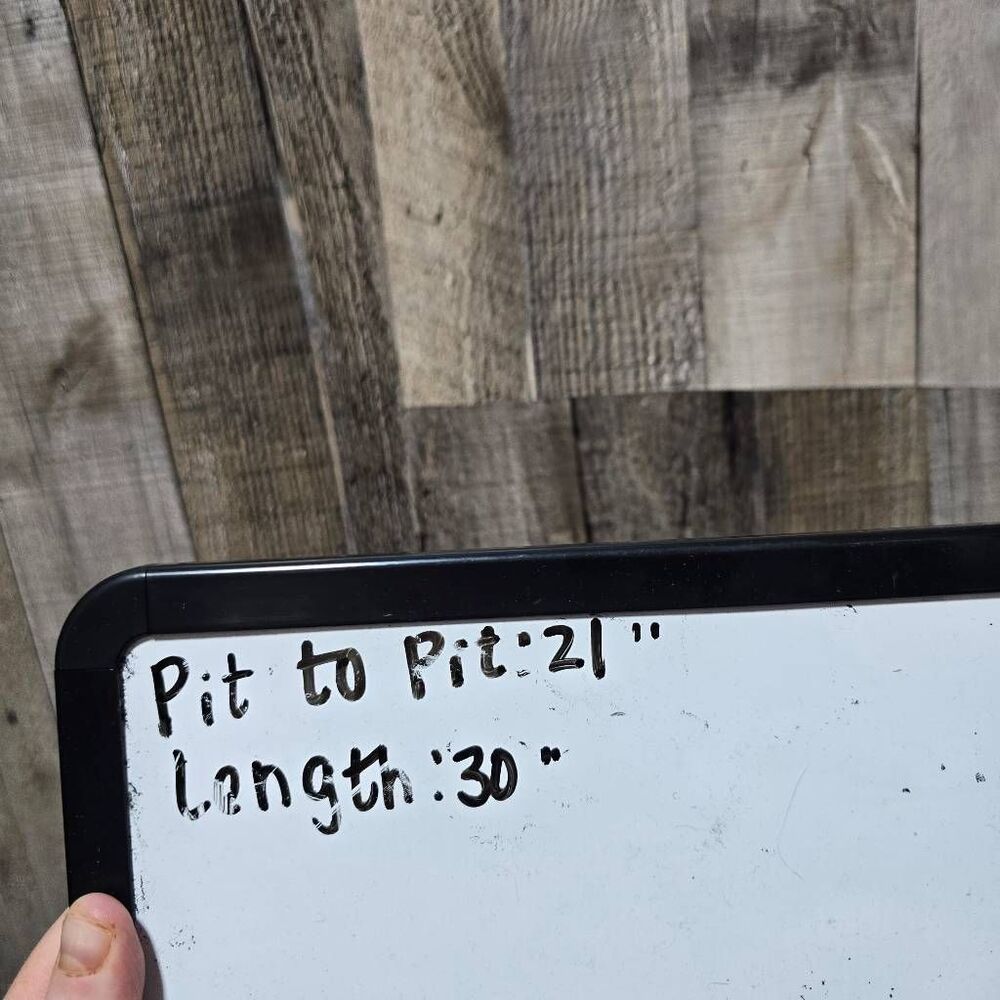 Pit to Pit:21"
Length:30"